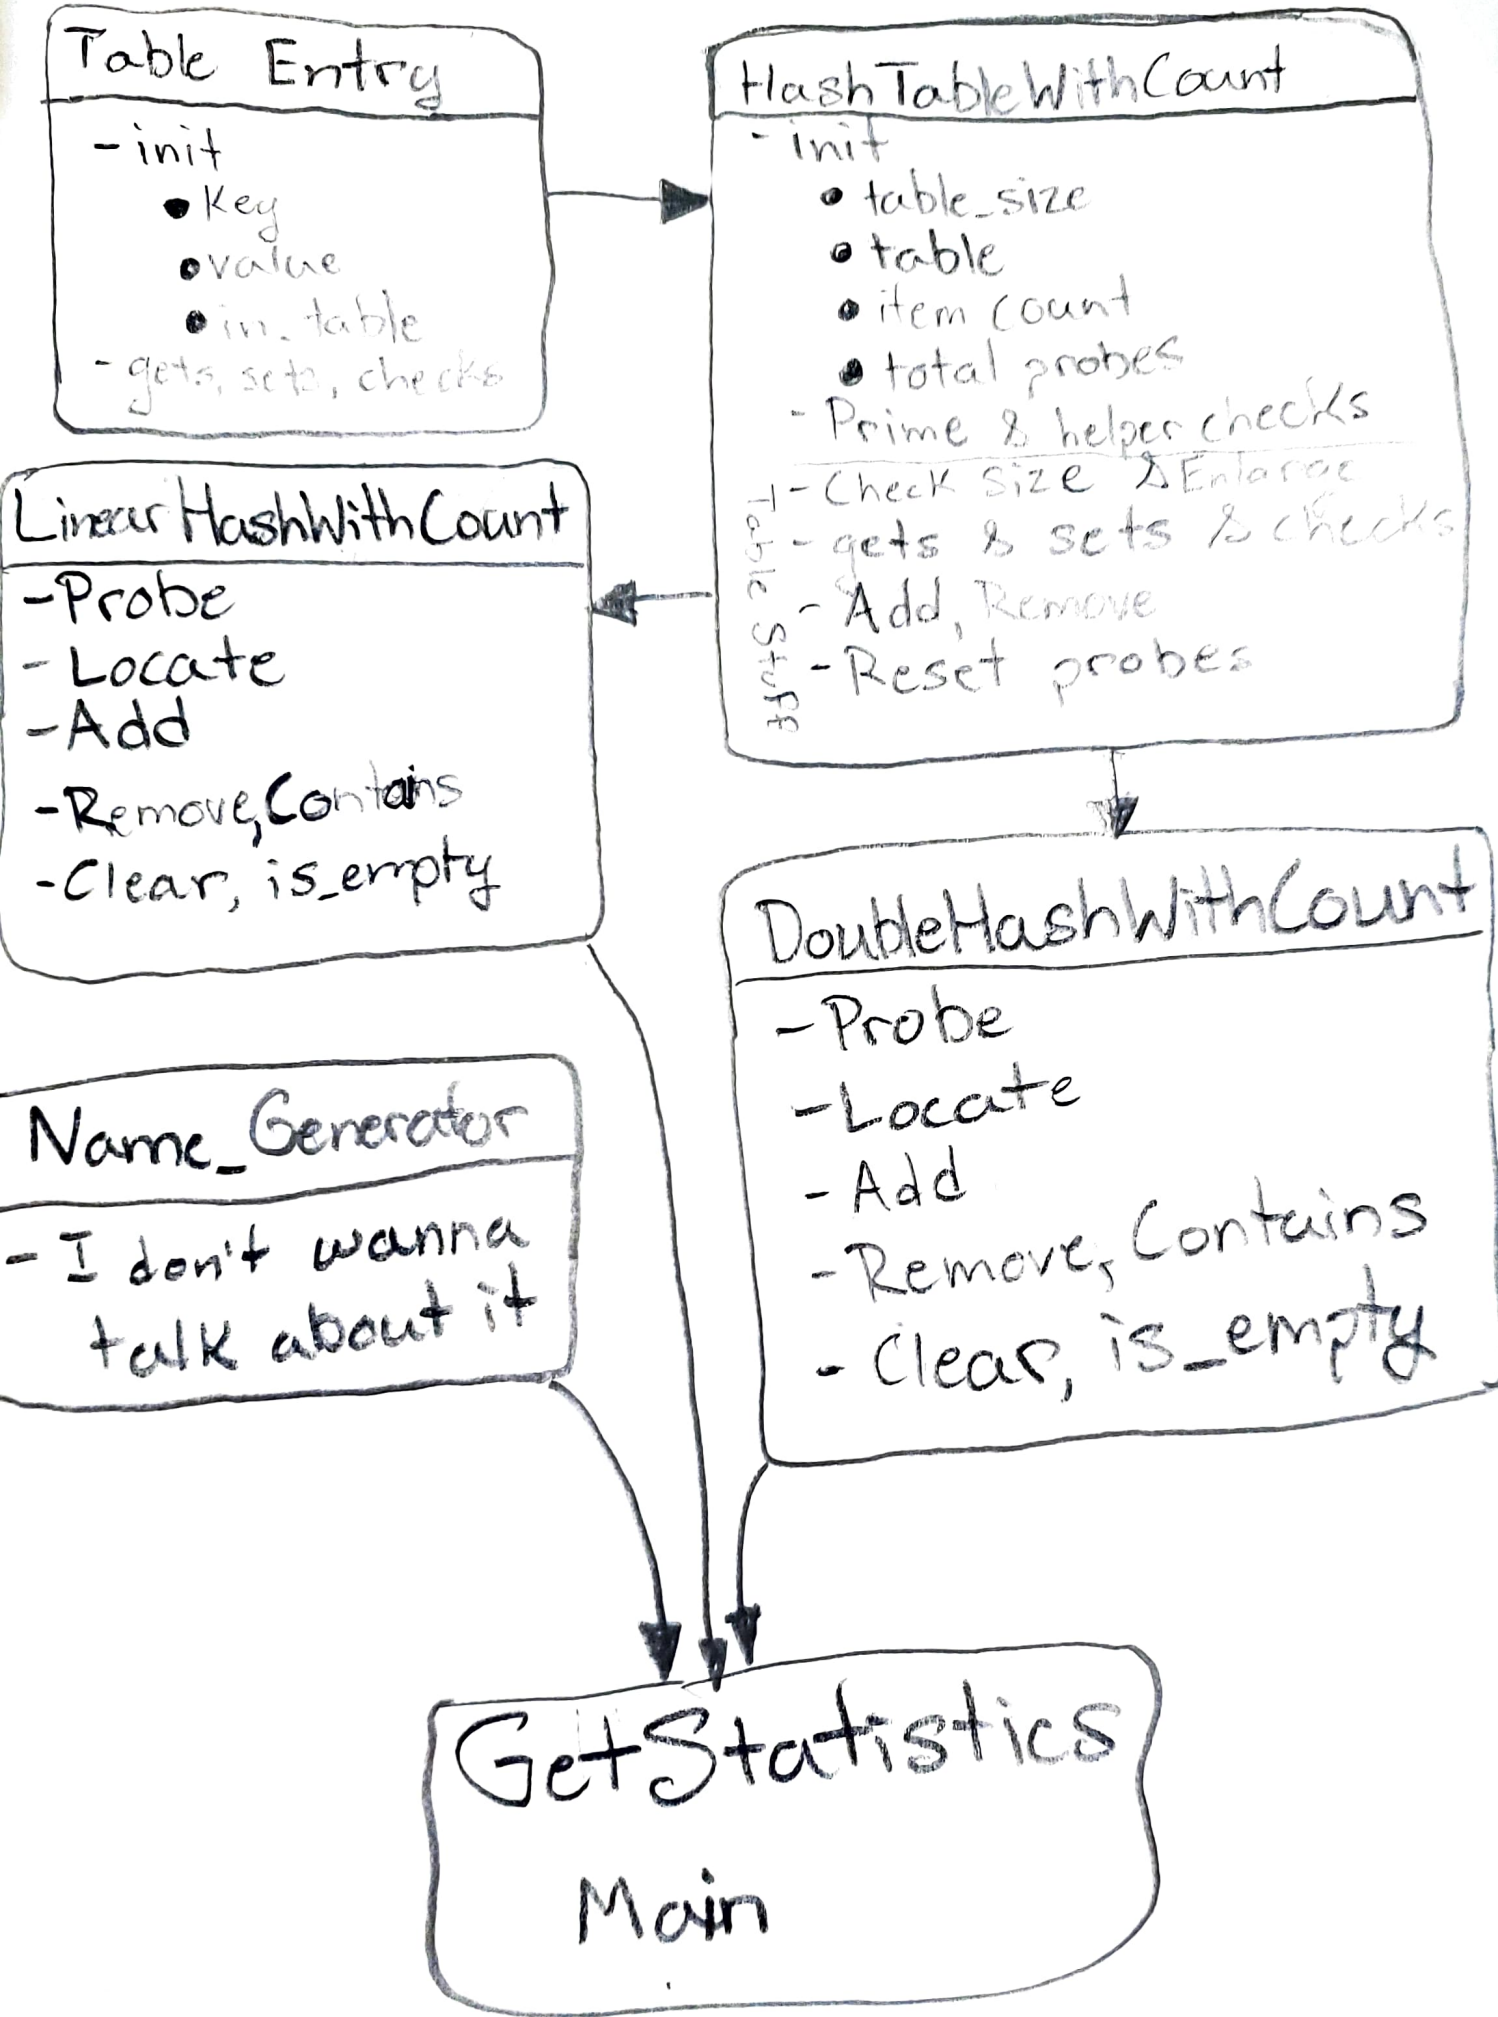 Table Entry
- init
• Key
• value
• in_table
- gets, sets, checks
HashTableWithCount
- init
• table_size
• table
• item count
• total probes
- Prime & helper checks
Table Stuff
- Check Size & Enlarge
- gets & sets & checks
- Add, Remove
- Reset probes
LinearHashWithCount
- Probe
- Locate
- Add
- Remove, Contains
- Clear, is_empty
DoubleHashWithCount
- Probe
- Locate
- Add
- Remove, Contains
- Clear, is_empty
Name_Generator
- I don't wanna
talk about it
GetStatistics
Main